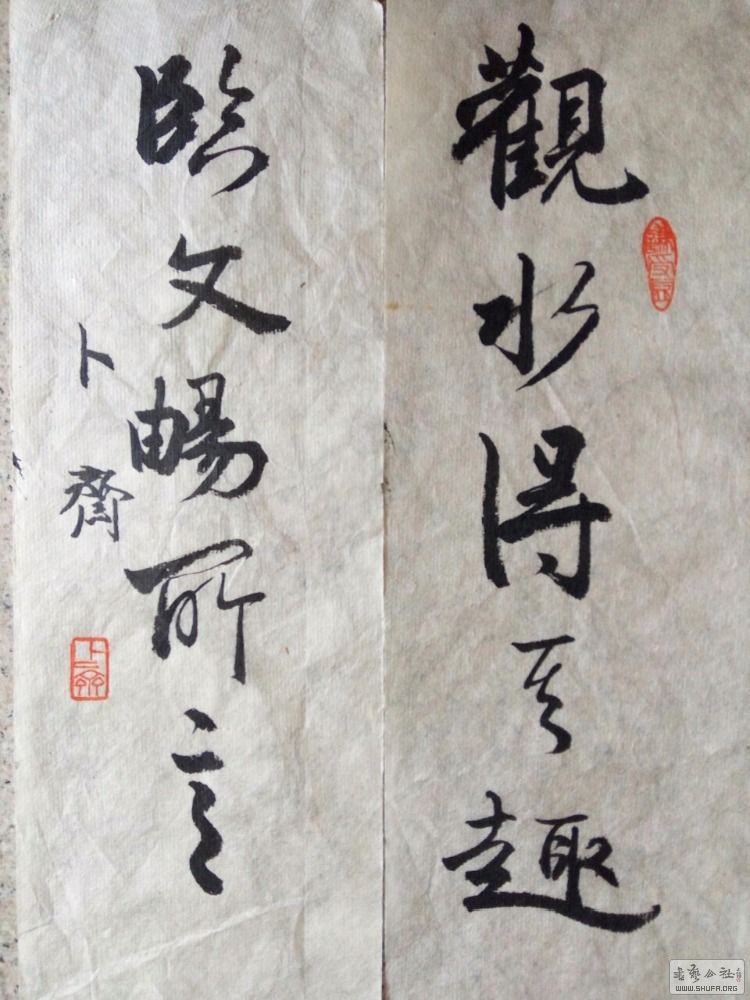 觀水得其趣
臨文暢所言
卜齋
卜齋
书艺公社
WWW.SHUFA.ORG